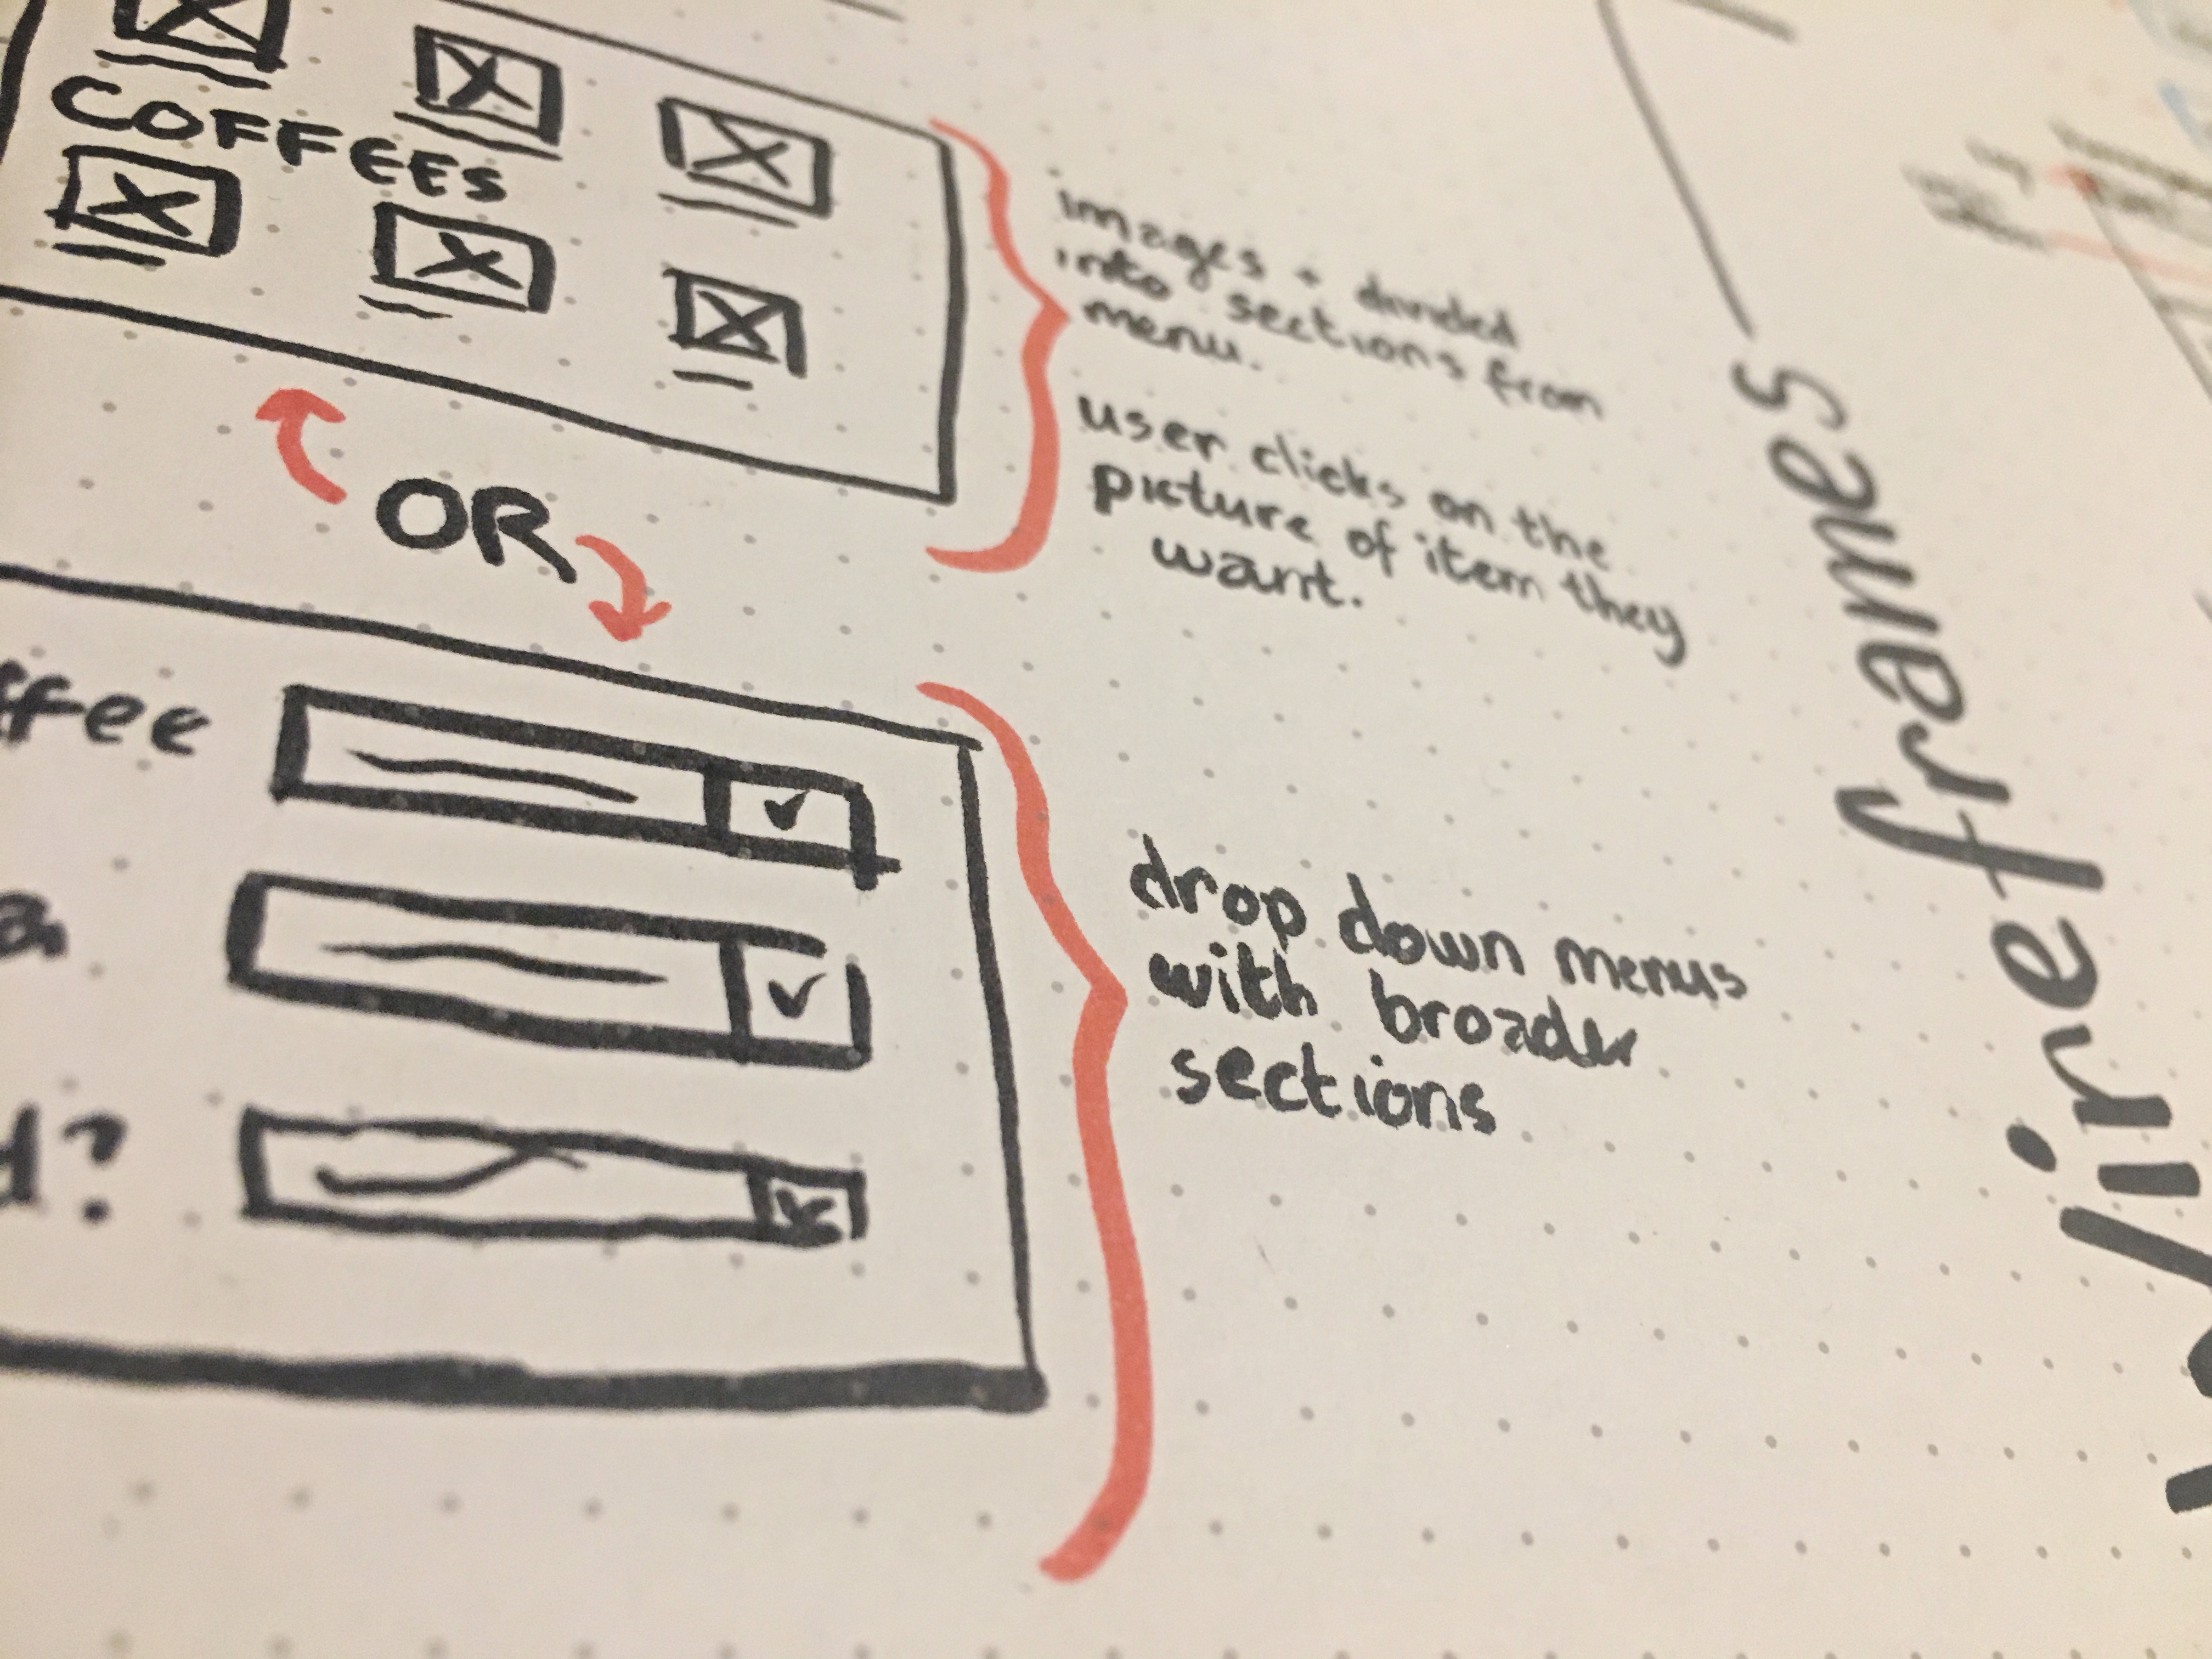 COFFEES
images + divided
into sections from
menu.
user clicks on the
picture of item they
want.
OR
ffee
a
d?
drop down menus
with broader
sections
Wireframes